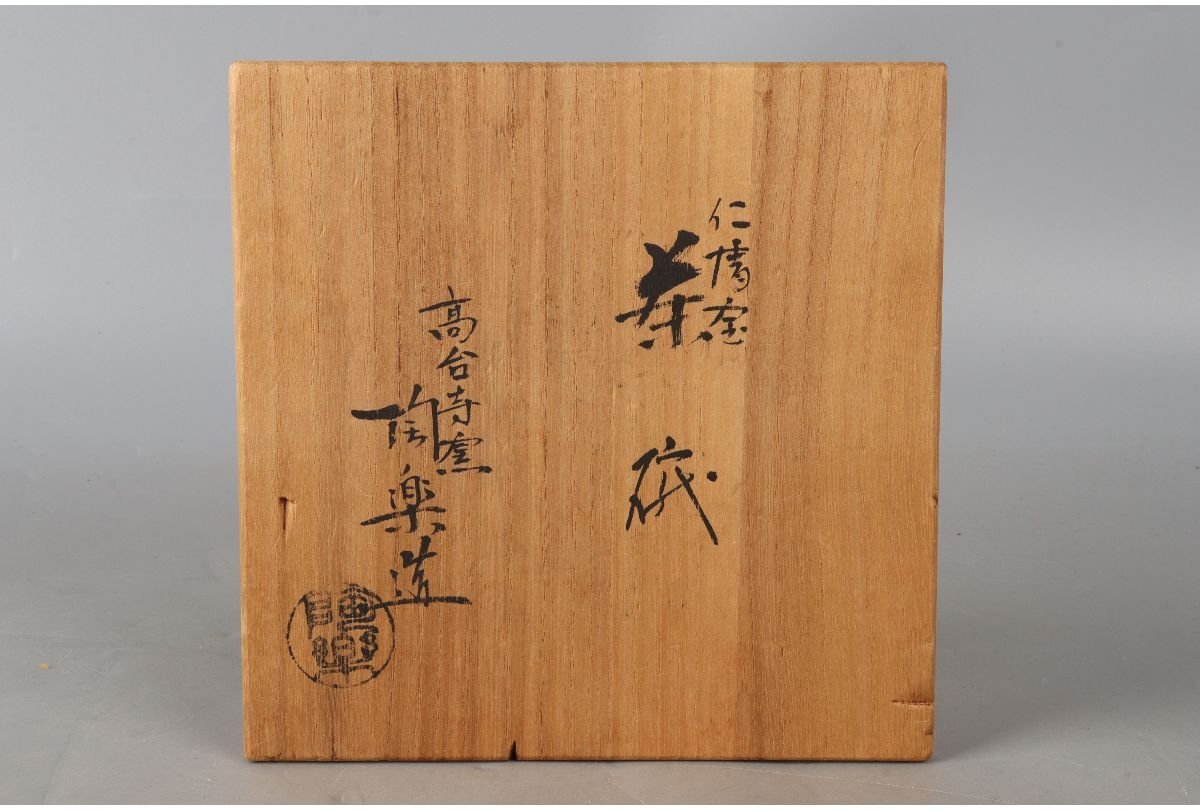 仁清写
茶碗
高台寺窯
陶楽造
陶楽